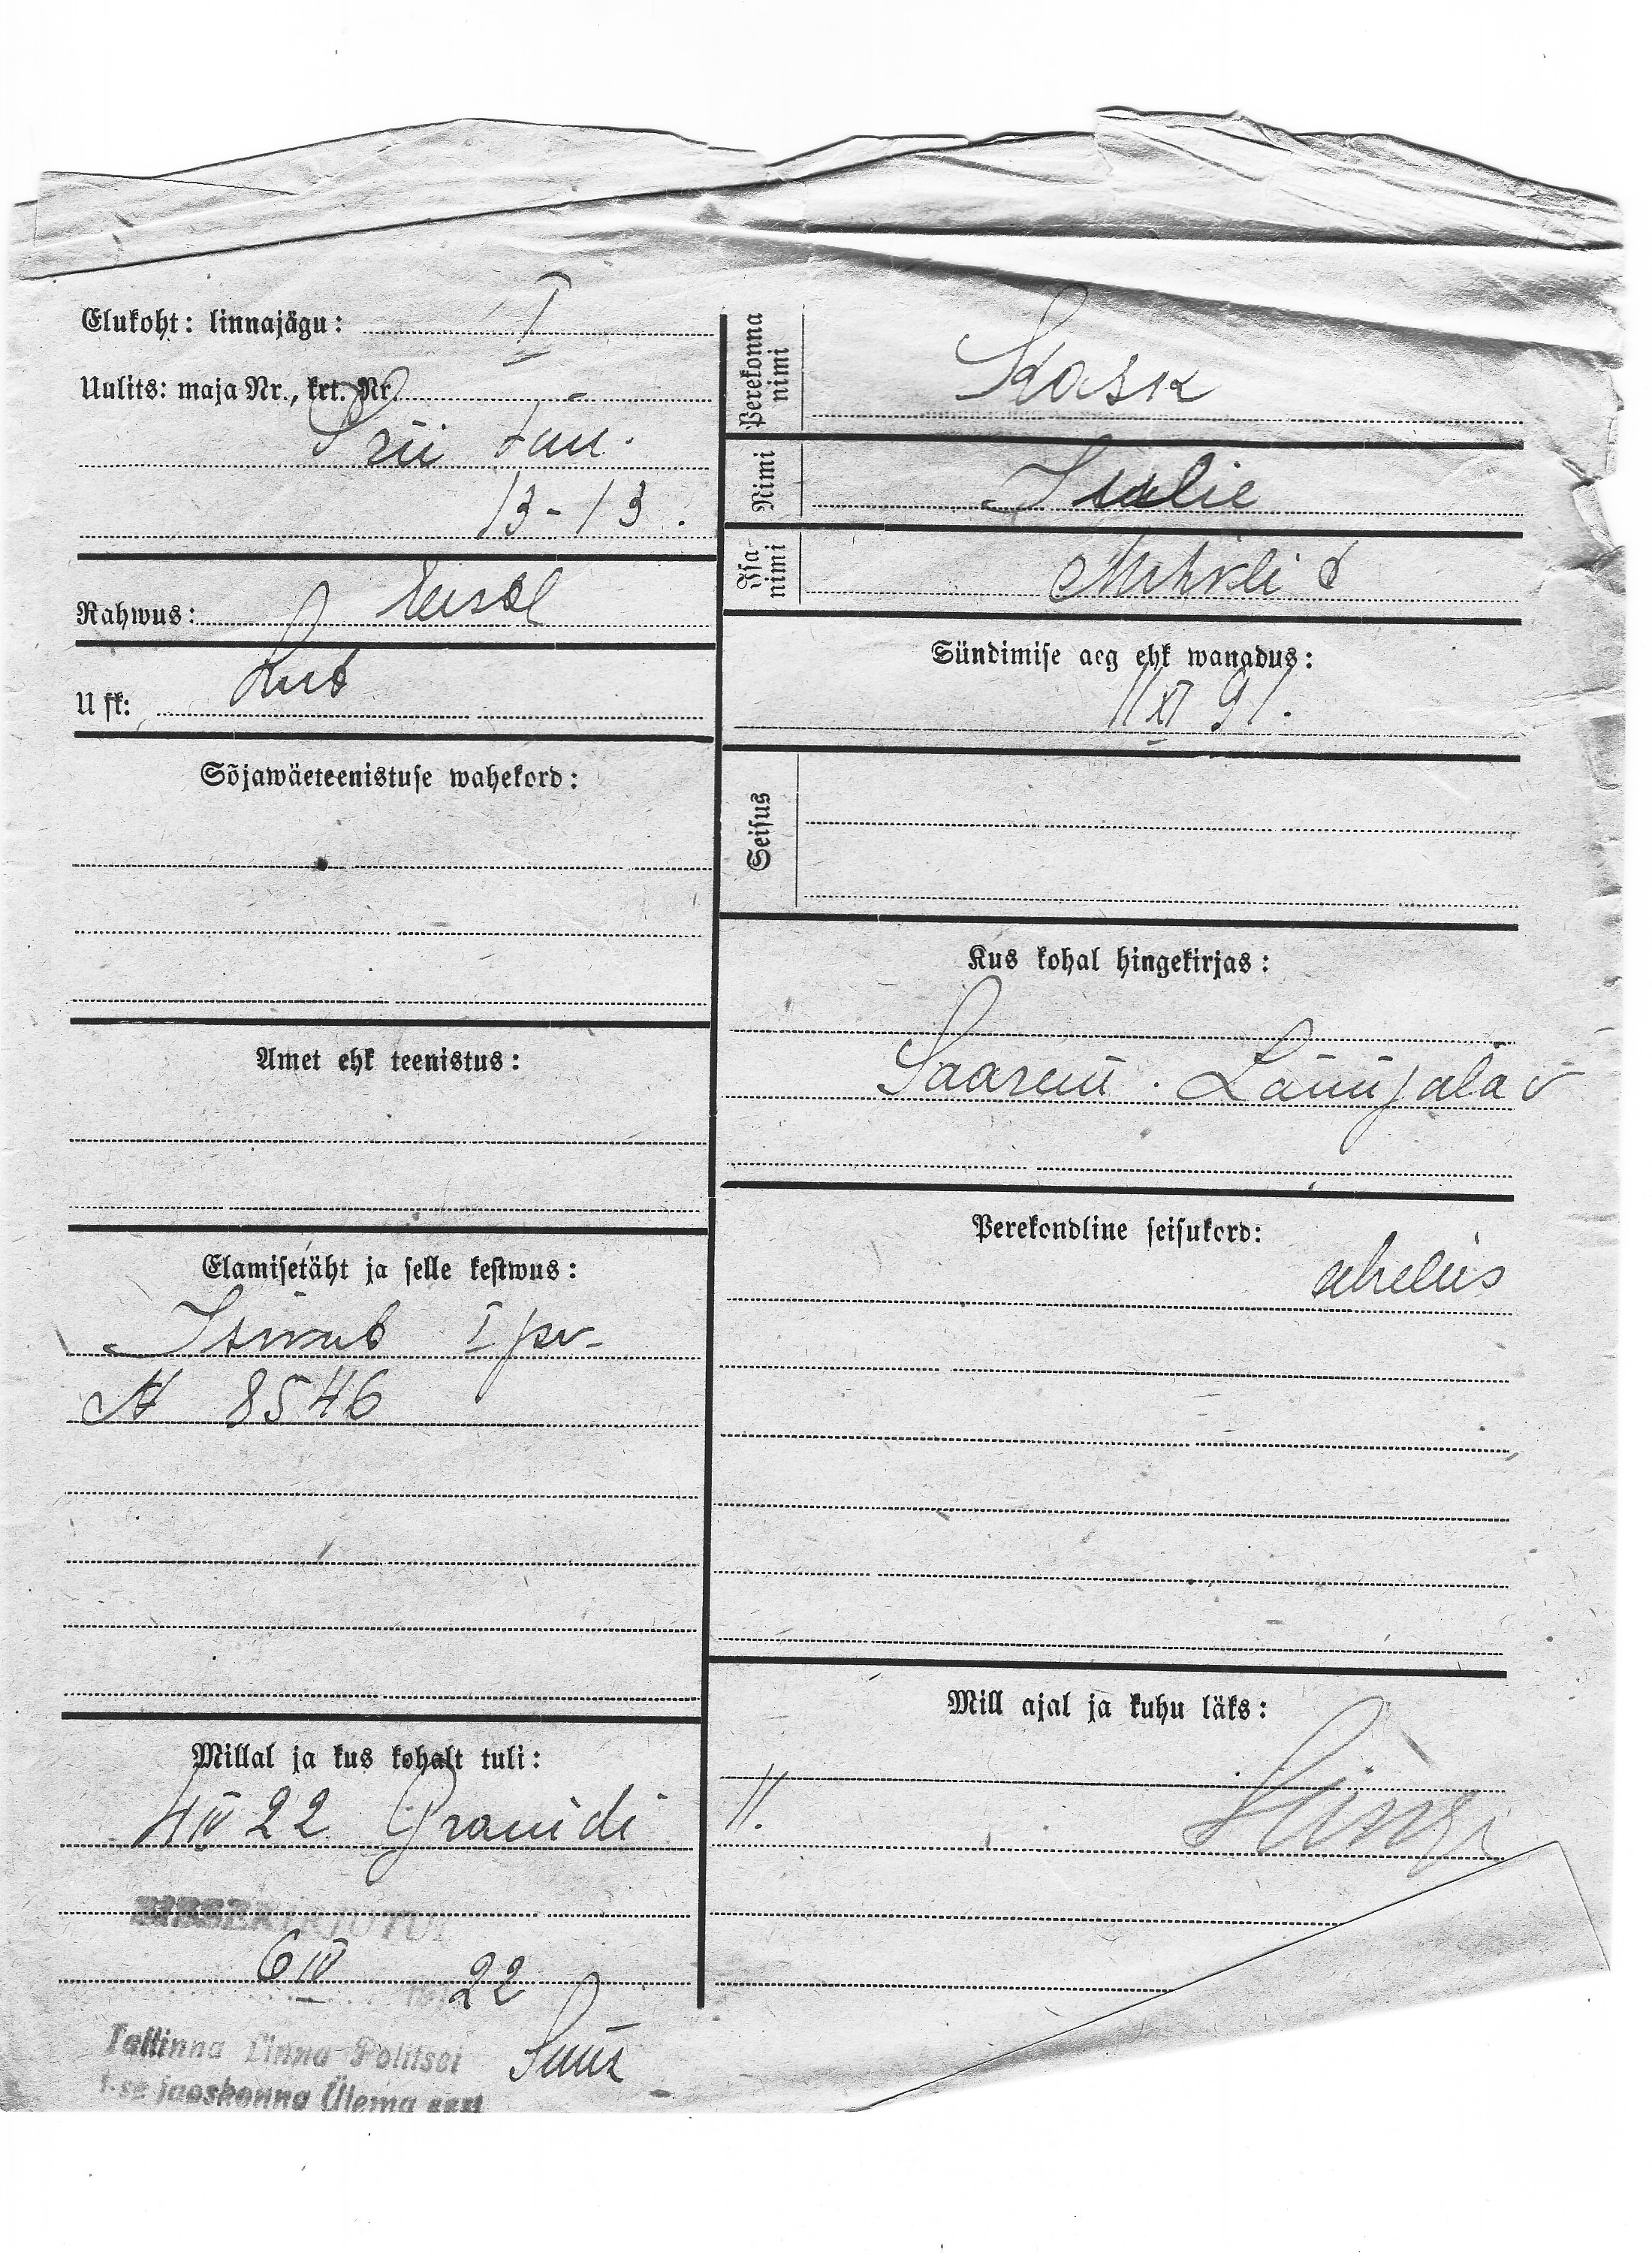 Elukoht: linnajägu: I
Uulits: maja Nr., krt. Nr.
Prii tän.
13-13.
Rahwus: Eesti
Usk: Lut
Sõjawäeteenistuse wahekord:
Amet ehk teenistus:
Elamisetäht ja selle kestwus:
I pr
N 8546
Millal ja kus kohalt tuli:
4 IV 22 Graniidi
SISSEKIRJUTUD
6 IV 22
Tallinna Linna Politsei
1-se jaoskonna Ülema eest
Perekonna nimi
Kask
Nimi
Julie
Isa-nimi
Mihkli t
Sündimise aeg ehk wanadus:
11 XI 91.
Seisus
Kus kohal hingekirjas:
Saarem. Laimjala v
Perekondline seisukord:
abielus
Mill ajal ja kuhu läks: